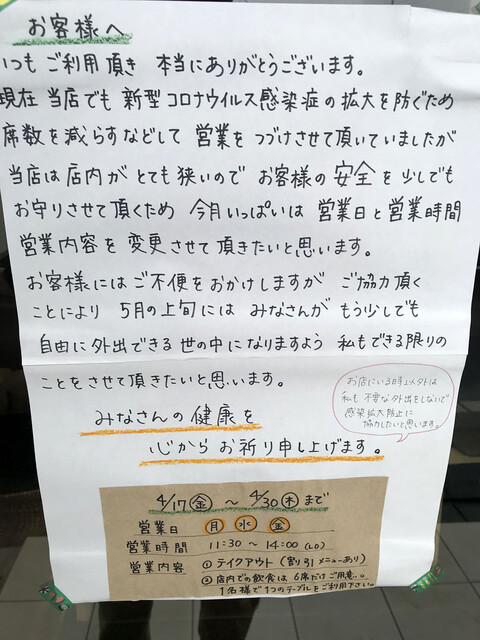 お客様へ
いつも ご利用頂き 本当にありがとうございます。
現在 当店でも 新型コロナウイルス感染症の拡大を防ぐため
席数を減らすなどして 営業を つづけさせて頂いていましたが
当店は店内が とても狭いので お客様の安全を少しでも
お守りさせて頂くため 今月いっぱいは 営業日と営業時間
営業内容を 変更させて頂きたいと思います。
お客様にはご不便をおかけしますが ご協力頂く
ことにより 5月の上旬には みなさんが もう少しでも
自由に外出できる世の中になりますよう 私もできる限りの
ことをさせて頂きたいと思います。
お店にいる時以外は
私も 不要な外出をしないで
感染拡大防止に
協力したいと思います。
みなさんの健康を
心からお祈り申し上げます。
4/17(金) ～ 4/30(木)まで
営業日 月 水 金
営業時間 11:30 ～ 14:00(LO)
営業内容 ① テイクアウト (割り引メニューあり)
② 店内での飲食は 6席だけご用意。。
1名様で1つのテーブルをご利用下さい。